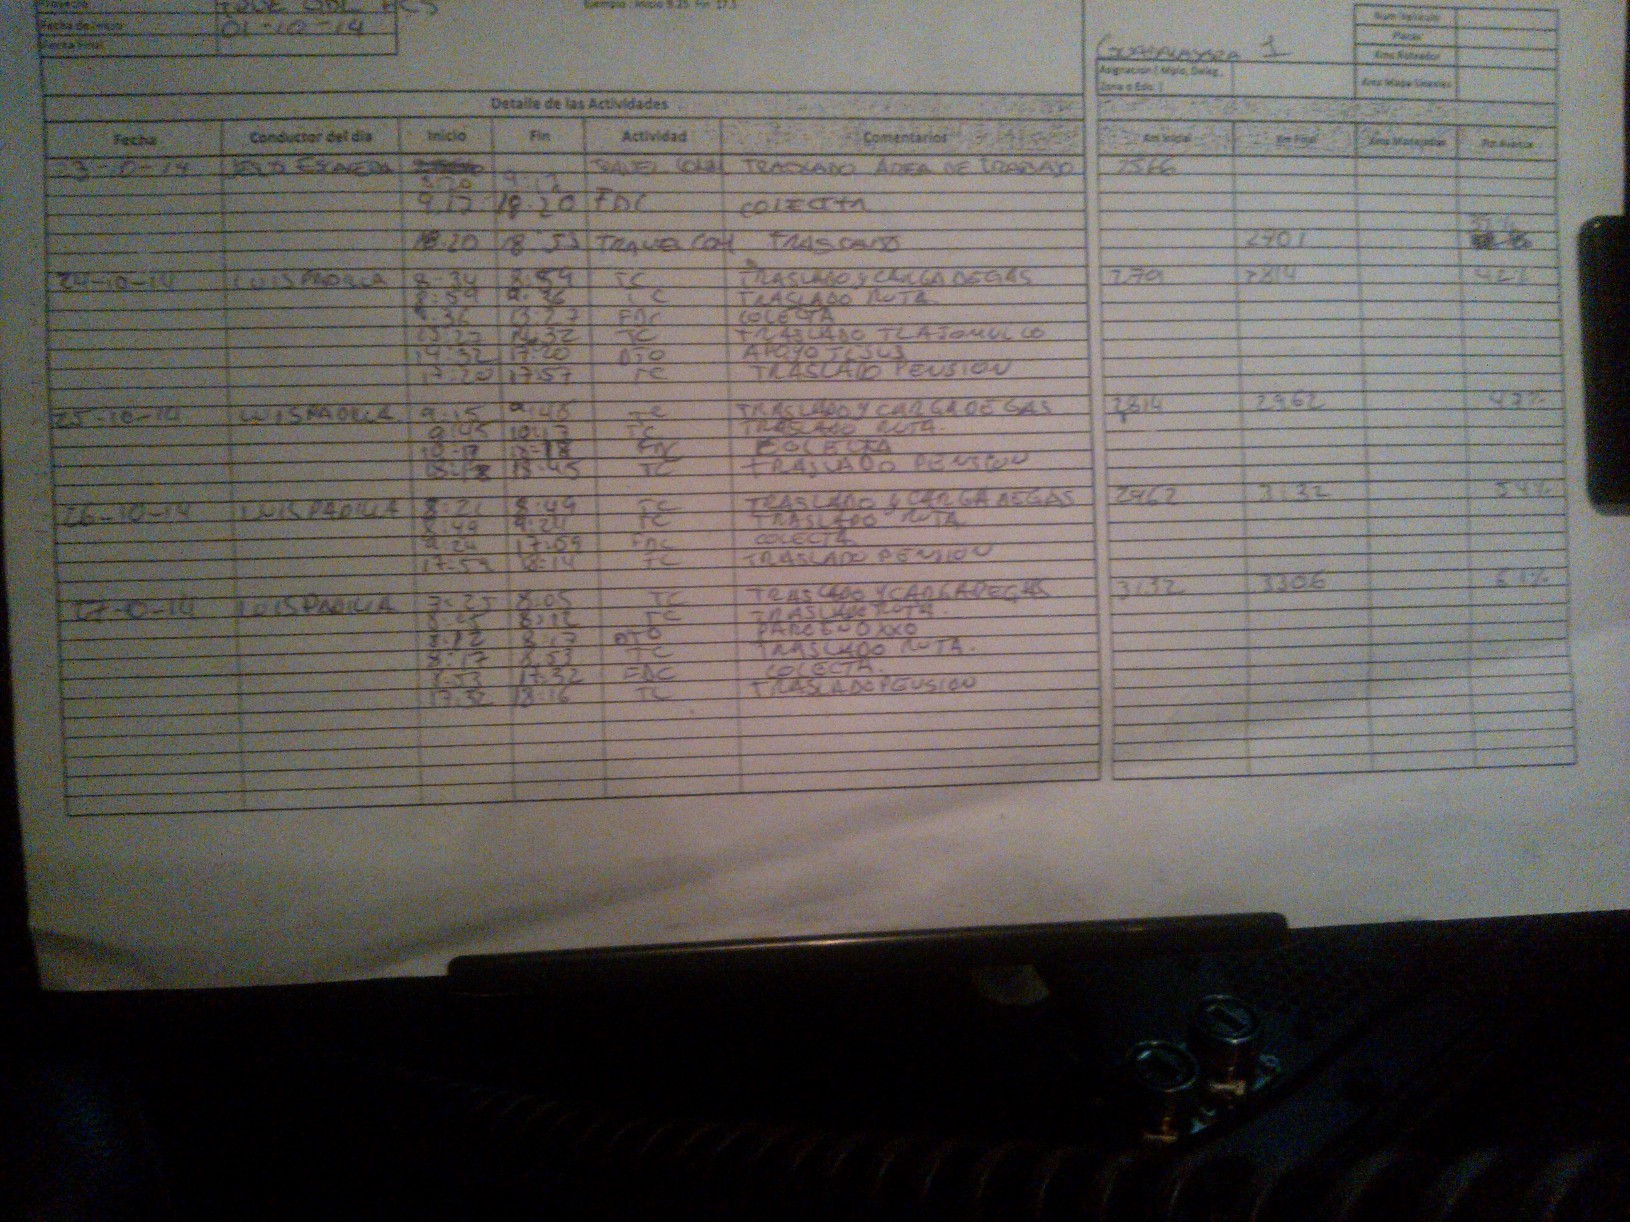 Proyecto
Ejemplo: Inicio 9.25 Fin 17.5
Fecha de Inicio 01-10-14
Fecha Final
Num Vehiculo
Placas
GUADALAJARA 1
Kms Ruteador
Asignacion ( Mpio, Deleg,
Zona o Edo. )
Detalle de las Actividades
Fecha Conductor del dia Inicio Fin Actividad Comentarios Km Inicial Km Final Kms Manejados Pct Avance
TRASLADO AREA DE TRABAJO 2566
9:17 18:20 FDC COLECTA
18:20 18:53 TRAVEL COM TRASLADO 2701
24-10-14 LUIS PADILLA 8:34 8:59 TC TRASLADO Y CARGA DE GAS 2814 42%
8:59 9:36 TC TRASLADO RUTA
9:36 13:27 FDC COLECTA
13:27 14:32 TC TRASLADO TLAJOMULCO
14:32 17:20 OTO APOYO JESUS
17:20 17:57 TC TRASLADO PENSION
25-10-14 LUIS PADILLA 9:15 9:45 TC TRASLADO Y CARGA DE GAS 2814 2962 47%
9:45 10:17 TC TRASLADO RUTA
FDC COLECTA
TC TRASLADO PENSION
26-10-14 LUIS PADILLA 8:21 8:49 TC TRASLADO Y CARGA DE GAS 2962 3132 54%
8:49 9:24 TC TRASLADO RUTA
9:24 17:59 FDC COLECTA
17:59 18:14 TC TRASLADO PENSION
27-10-14 LUIS PADILLA 8:05 TC TRASLADO Y CARGA DE GAS 3132 3306 61%
8:12 TC TRASLADO RUTA
8:12 8:17 OTO PARO EN OXXO
8:17 8:53 TC TRASLADO RUTA.
8:53 17:32 FDC COLECTA.
17:32 18:16 TC TRASLADO PENSION